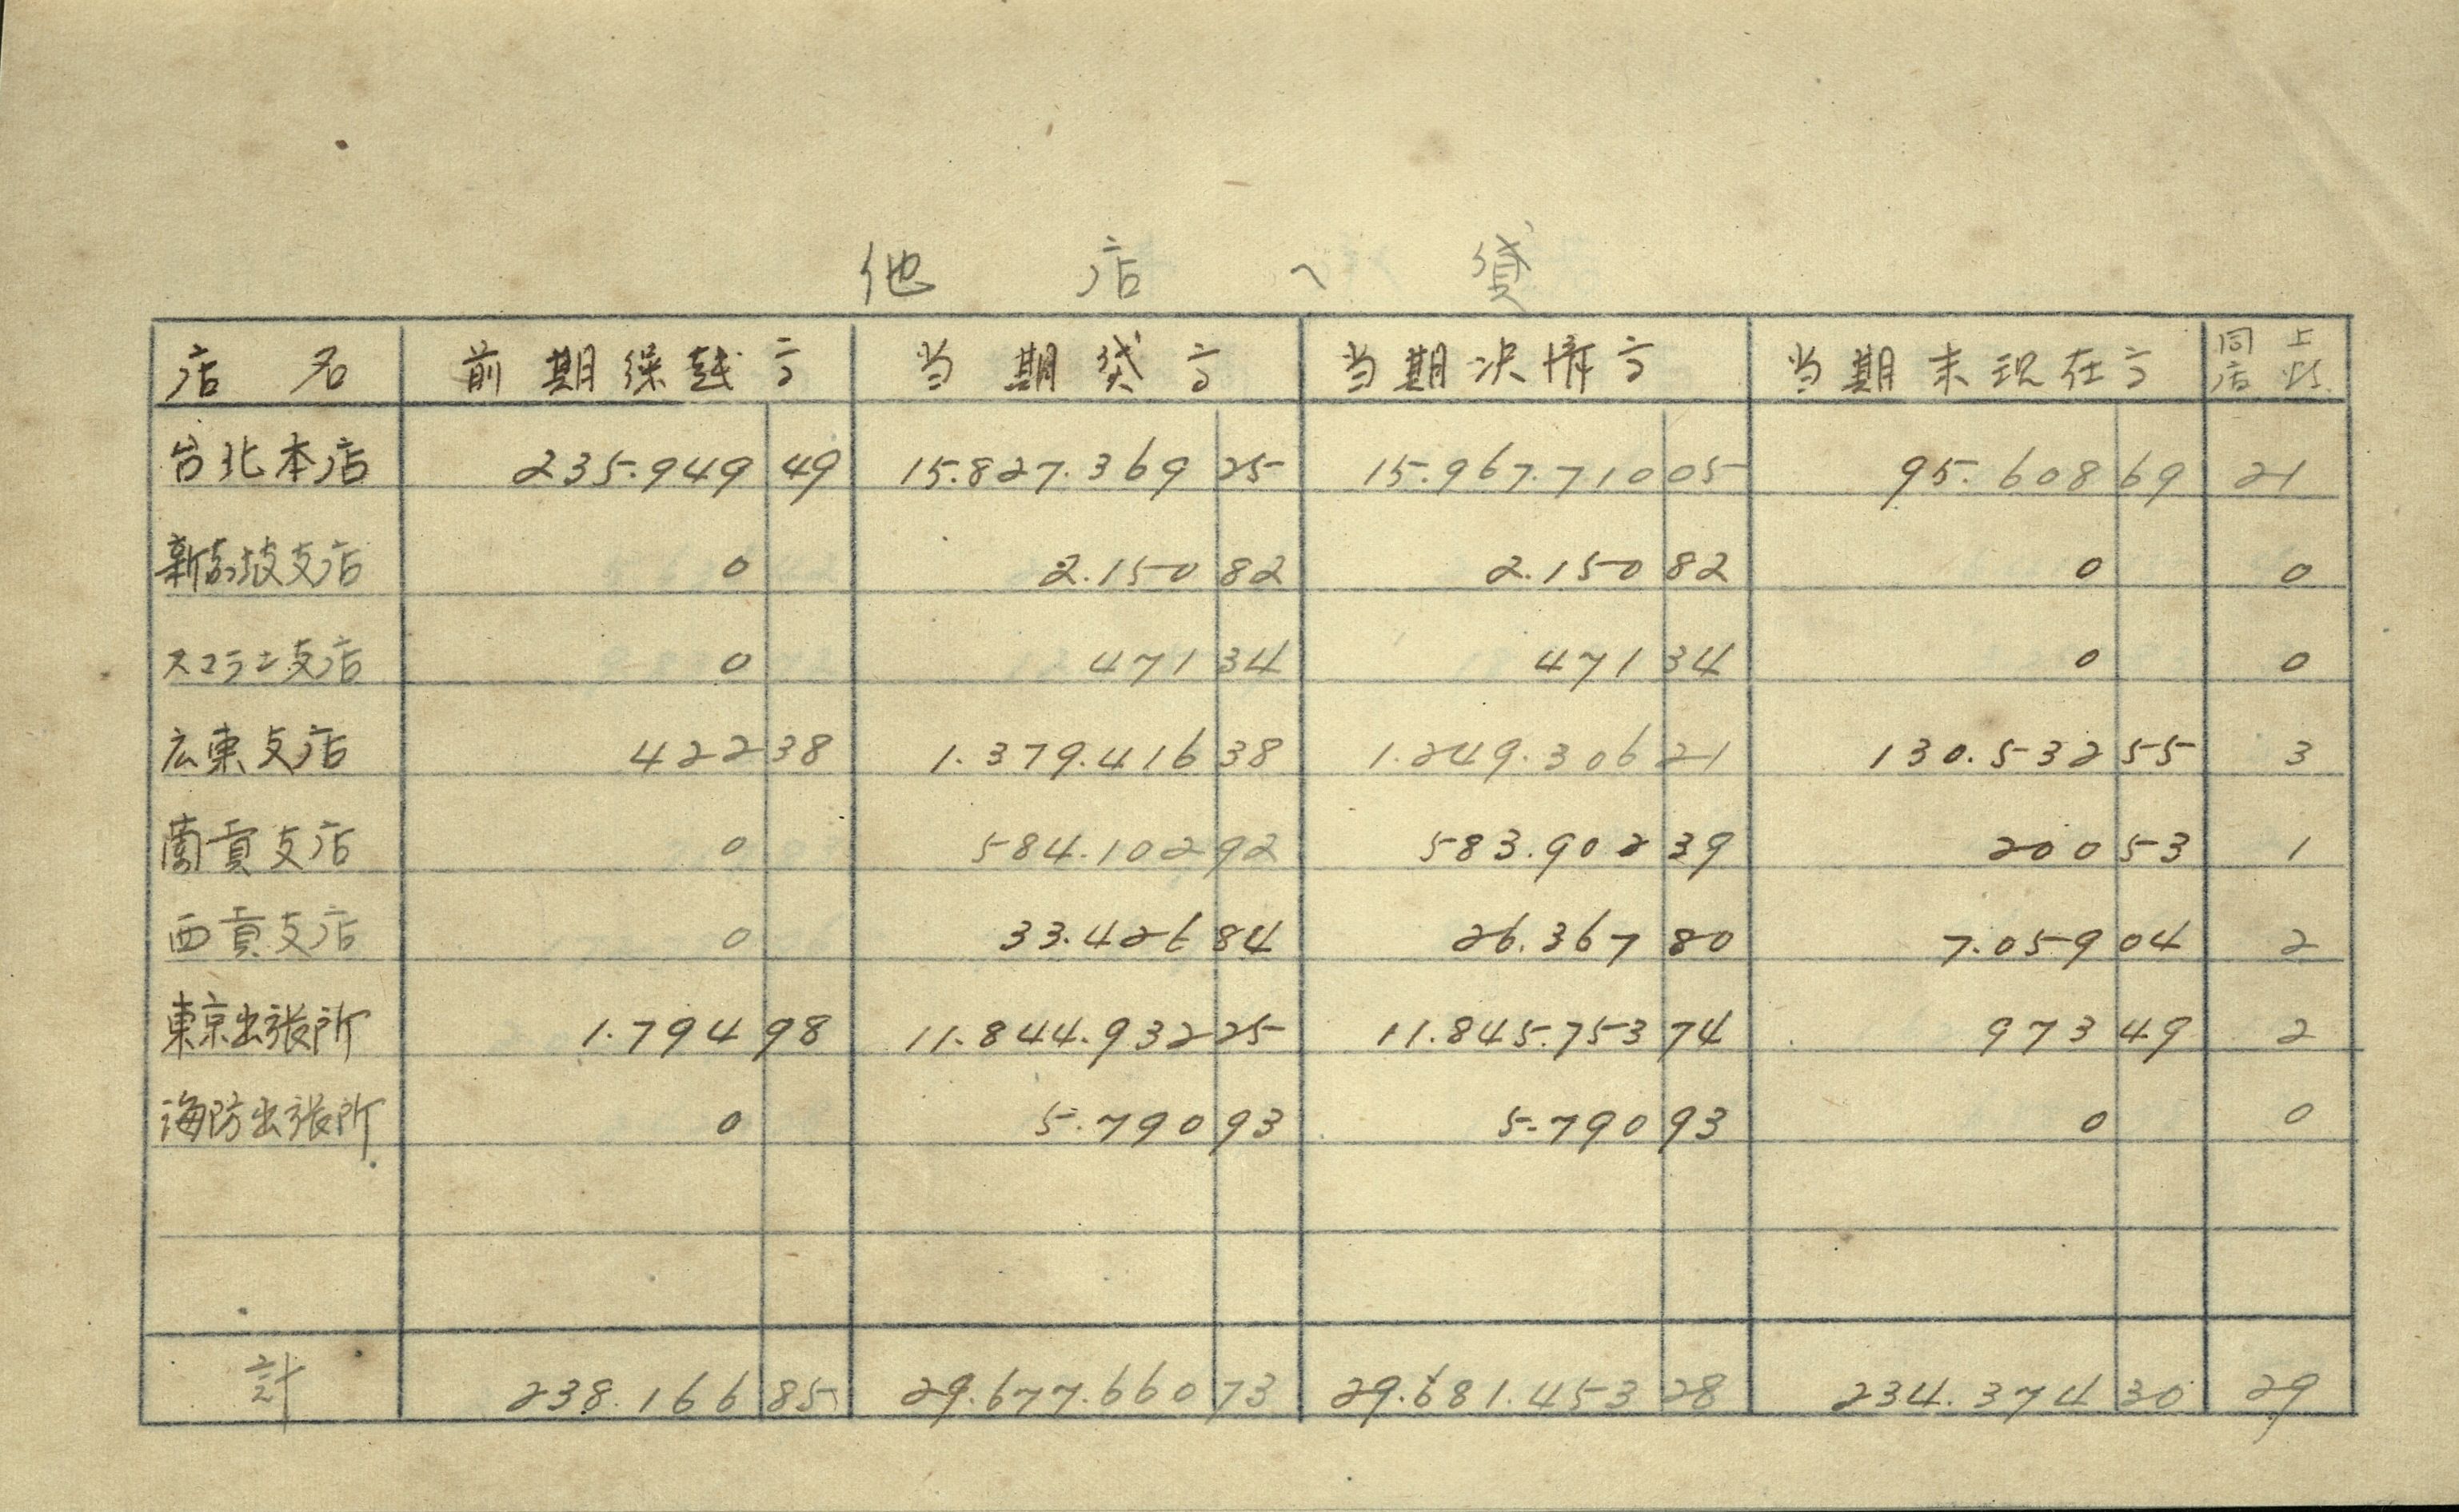 他店へ貸
店名 前期繰越高 当期貸高 当期決済高 当期末現在高 同上口店
台北本店 235.949 49 15.827.369 25 15.967.710 05 95.608 69 21
新嘉坡支店 0 2.150 82 2.150 82 0 0
スマラン支店 0 471 34 471 34 0 0
広東支店 422 38 1.379.416 38 1.249.306 21 130.532 55 3
蘭貢支店 0 584.102 92 583.902 39 200 53 1
西貢支店 0 33.426 84 26.367 80 7.059 04 2
東京出張所 1.794 98 11.844.932 25 11.845.753 74 973 49 2
海防出張所 0 5.790 93 5.790 93 0 0
計 238.166 85 29.677.660 73 29.681.453 28 234.374 30 29